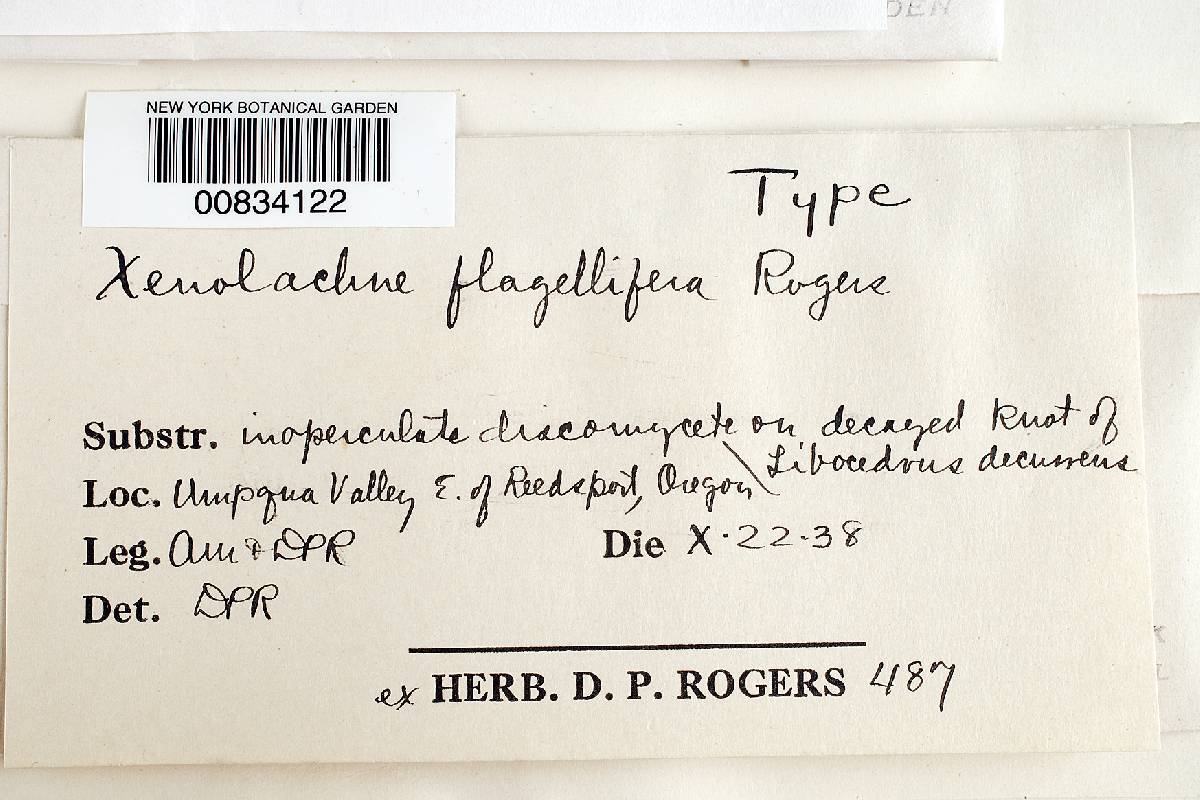 DEN
NEW YORK BOTANICAL GARDEN
00834122
Type
Xenolachne flagellifera Rogers
Substr. inoperculate discomycete on decayed knot of
Libocedrus decurrens
Loc. Umpqua Valley E. of Reedsport, Oregon
Leg. Am & DPR Die X·22·38
Det. DPR
ex HERB. D. P. ROGERS 487